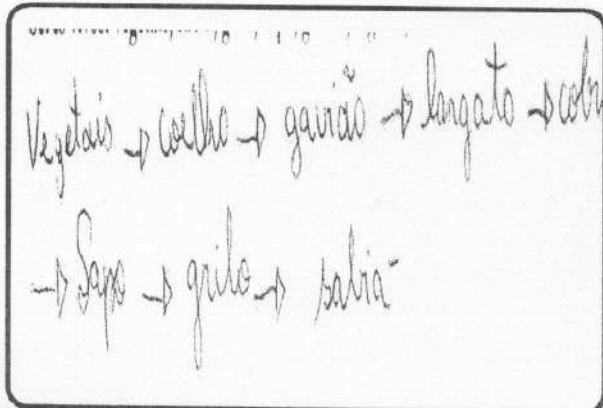 Vegetais → coelho → gavião → largato → cobr
→ Sapo → grilo → sabiá